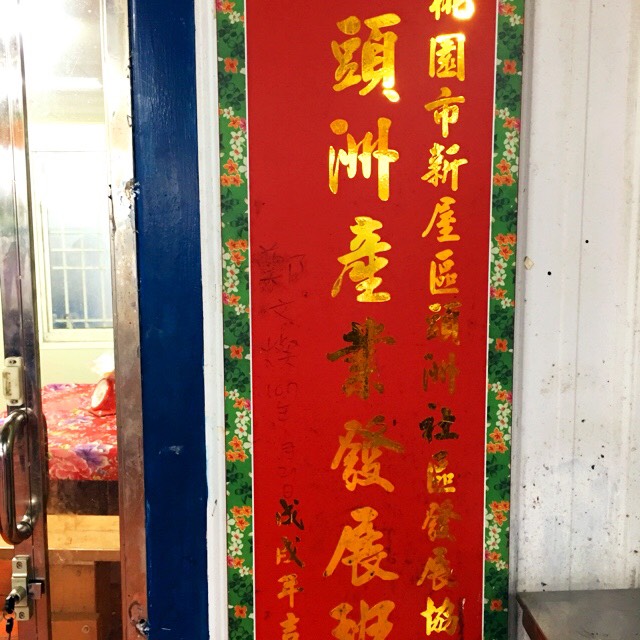 桃園市新屋區頭洲社區發展協
頭洲產業發展班
鄭文燦
戊戌年吉